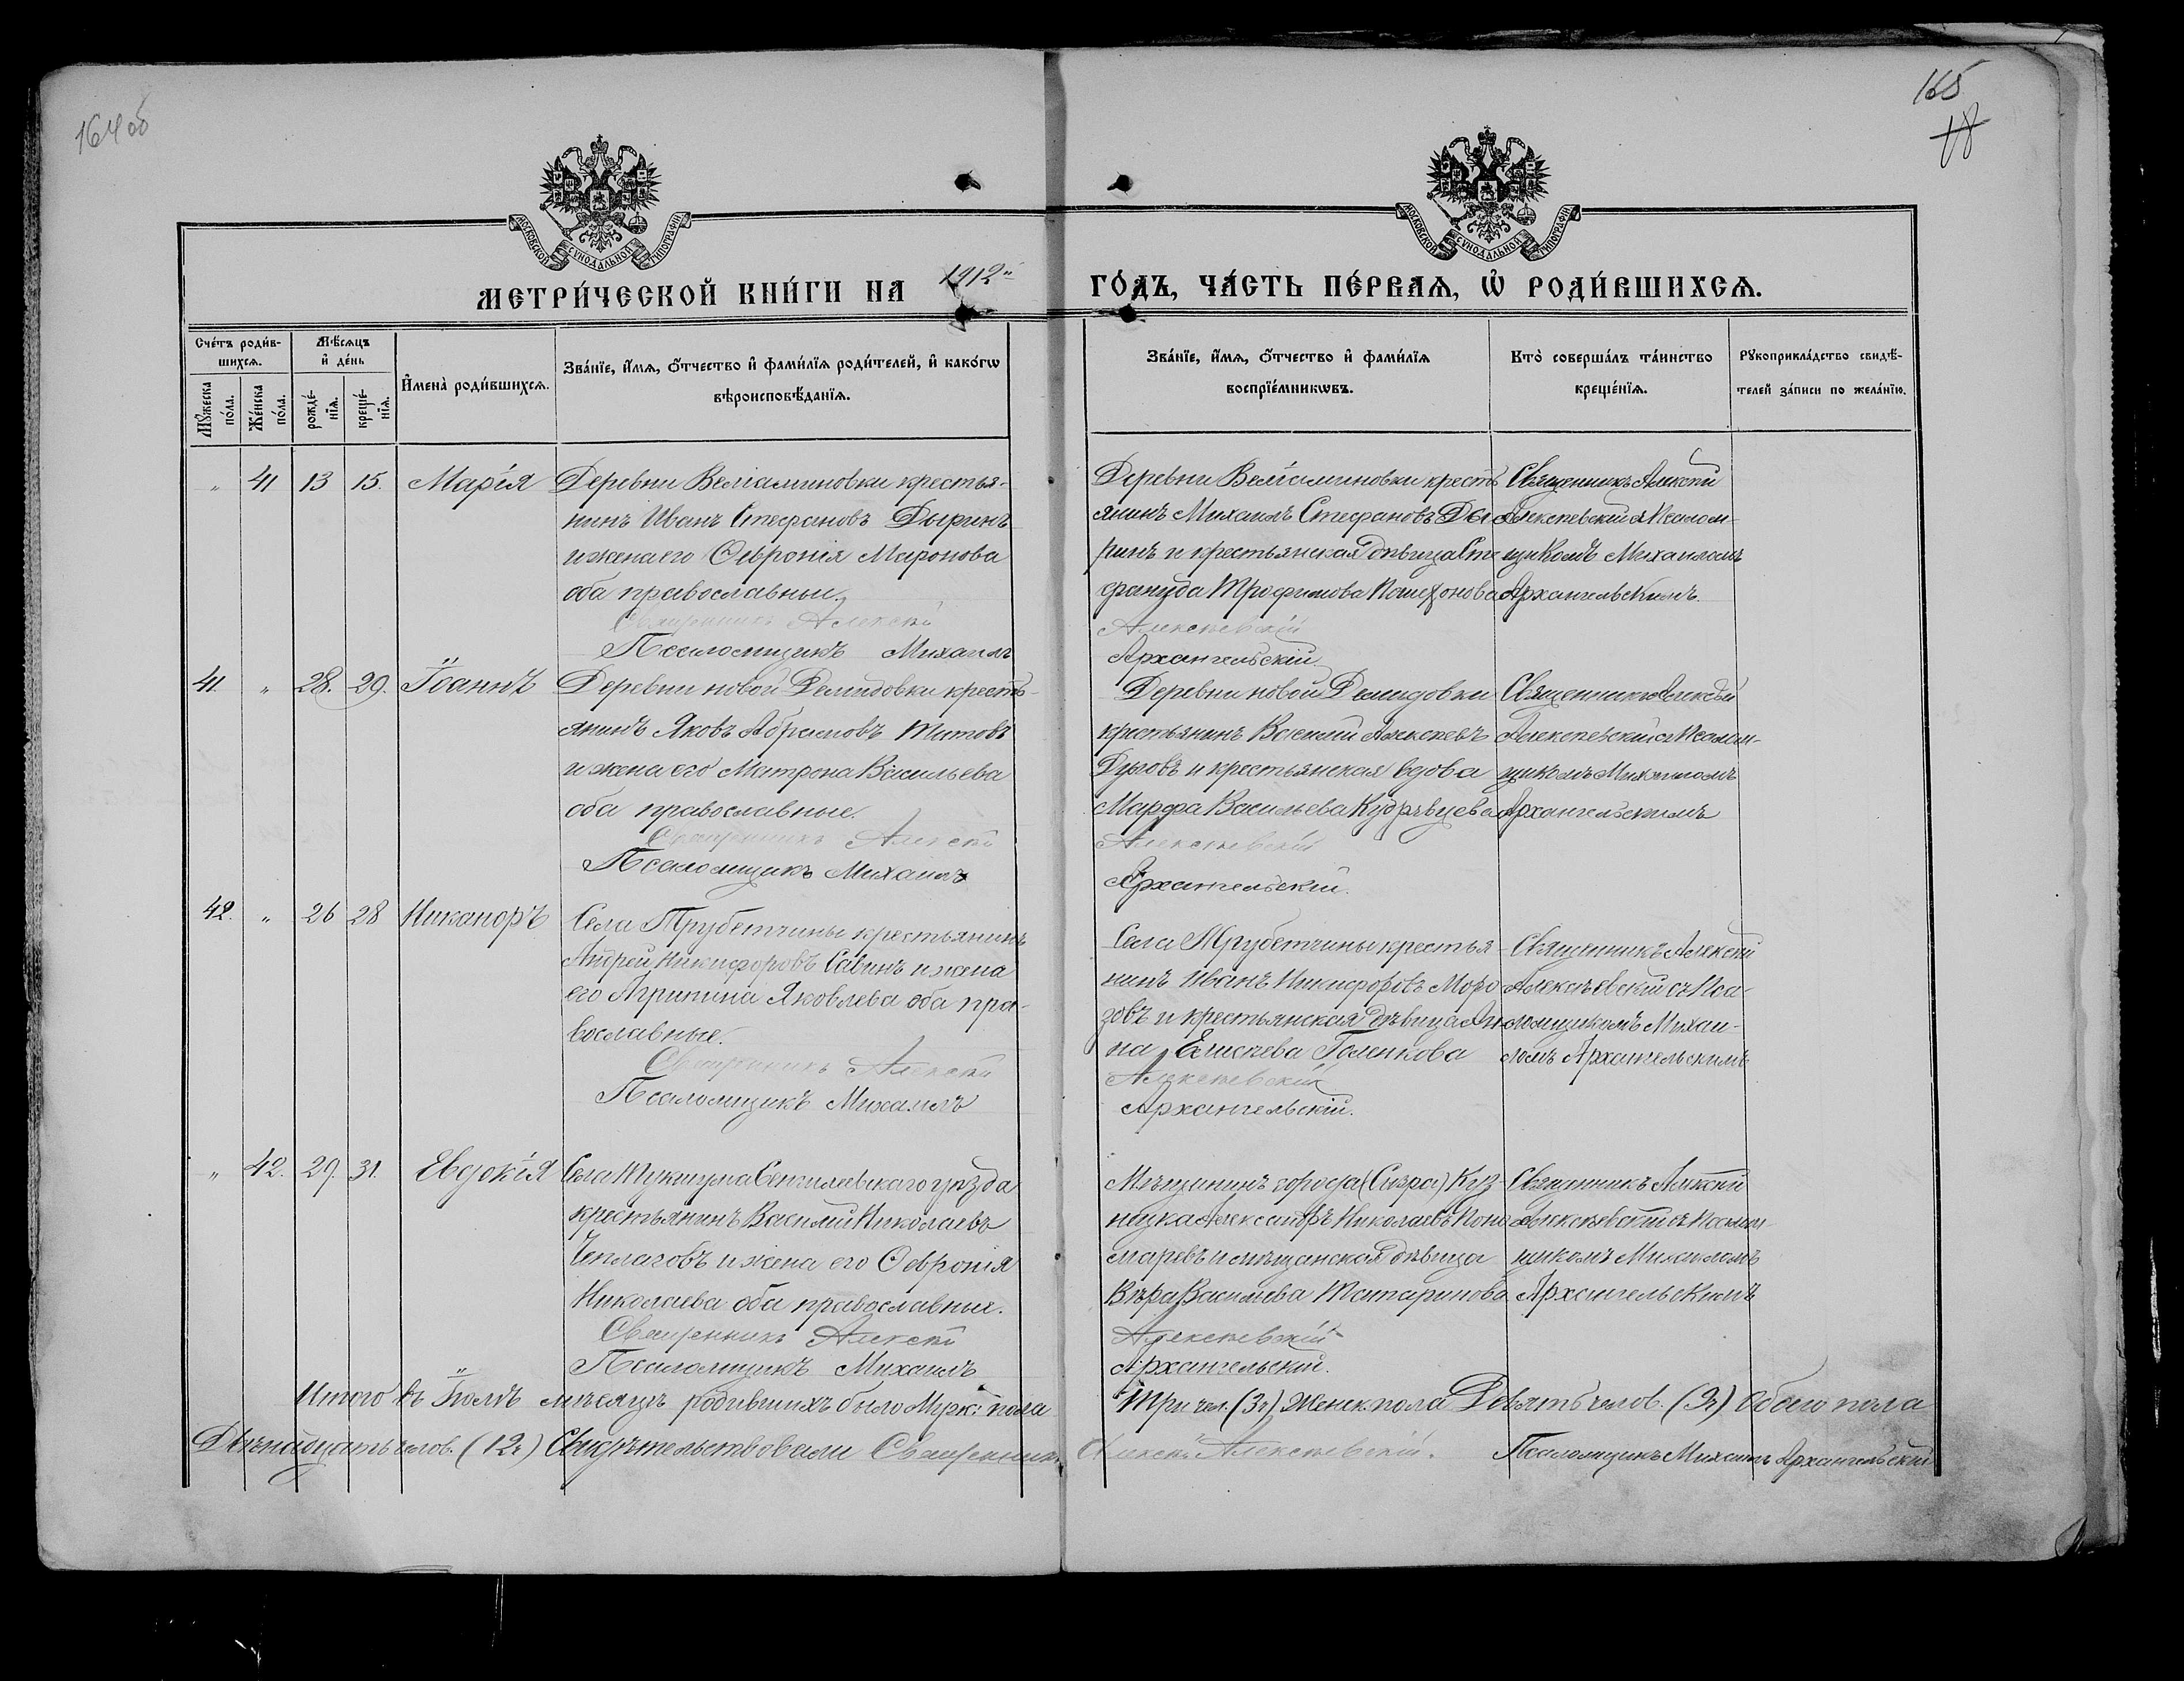 164 об
165
18
МОСКОВСКОЙ СУНОДАЛЬНОЙ ТИПОГРАФІИ
МОСКОВСКОЙ СУНОДАЛЬНОЙ ТИПОГРАФІИ
МЕТРИ́ЧЕСКОЙ КНИ́ГИ НА 1912 ГО́ДЪ, ЧА́СТЬ ПЕ́РВАѦ, Ѡ҆ РОДИ́ВШИХСѦ.
Сче́тъ роди́в-
шихсѧ.
Мꙋ́жеска по́ла.
Же́нска по́ла.
Мѣ́сѧцъ и҆ де́нь
рожде́-
нїѧ.
креще́-
нїѧ.
И҆мена̀ роди́вшихсѧ.
Зва́нїе, и҆́мѧ, ѻ҆́тчество и҆ фами́лїѧ роди́телей, и҆ како́гѡ
вѣроисповѣ́данїѧ.
Зва́нїе, и҆́мѧ, ѻ҆́тчество и҆ фами́лїѧ
воспрїе́мникѡвъ.
Кто̀ соверша́лъ та́инство
креще́нїѧ.
Рꙋкоприкла́дство свидѣ́-
телей за́писи по жела́нїю.
„ 41 13 15. Марія
Деревни Веліаминовки крестья-
нинъ Иванъ Стефановъ Дыринъ
и жена его Ѳеврония Миронова
оба православные.
Священникъ Алексѣй
Псаломщикъ Михаилъ
Деревни Веліаминовки кресть
янинъ Михаилъ Стефановъ Ды
ринъ и крестьянская дѣвица Сте
фанида Трофимова
Алексѣевскій
Архангельскій.
Священникъ Алексѣй
Алексѣевскій съ Псалом-
щикомъ Михаиломъ
Архангельскимъ.
41. „ 28. 29. Іоаннъ
Деревни новой Демидовки кресть-
янинъ Яковъ Абрамовъ Титовъ
и жена его Матрона Васильева
оба православные.
Священникъ Алексѣй
Псаломщикъ Михаилъ
Деревни новой Демидовки
крестьянинъ Василий Алексеевъ
Дуловъ и крестьянская вдова
Марфа Васильева Кудрявцева
Алексѣевскій
Архангельскій.
Священникъ Алексѣй
Алексѣевскій съ Псалом-
щикомъ Михаиломъ
Архангельскимъ
42. „ 26 28 Никаноръ
Села Трубетчины крестьянинъ
Андрей Никифоровъ Савинъ и жена
его Агрипина Яковлева оба пра-
вославные.
Священникъ Алексѣй
Псаломщикъ Михаилъ
Села Трубетчины крестья-
нинъ Иванъ Никифоровъ Моро
зовъ и крестьянская дѣвица Ан-
на Елисѣева Голенкова
Алексѣевскій
Архангельскій.
Священникъ Алексѣй
Алексѣевскій съ Пса-
ломщикомъ Михаи-
ломъ Архангельскимъ
„ 42. 29. 31. Евдокія
Села Тукшума Сенгилеевскаго уѣзда
крестьянинъ Василий Николаевъ
и жена его Ѳеврония
Николаева оба православные.
Священникъ Алексѣй
Псаломщикъ Михаилъ
Мѣщанинъ города Куз-
нецка Александръ Николаевъ Поно
маревъ и мѣщанская дѣвица
Вѣра Васильева Татаринова
Алексѣевскій
Архангельскій.
Священникъ Алексѣй
Алексѣевскій съ Псалом-
щикомъ Михаиломъ
Архангельскимъ
Итого въ Іюлѣ мѣсяцѣ родившихъ было Мужс: пола Три чел. (3ч) Женск пола Девять челов. (9ч) обоего пола
Двѣнадцать челов. (12ч) Свидѣтельствовали Священникъ Алексѣй Алексѣевскій. Псаломщикъ Михаилъ Архангельскій